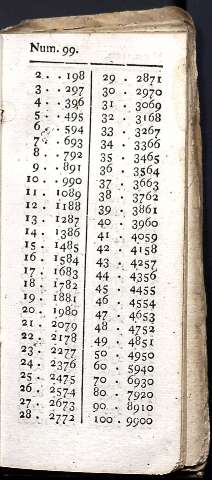 Num. 99.
2 . . 198
3 . . 297
4 . . 396
5 . . 495
6 . . 594
7 . . 693
8 . . 792
9 . . 891
10 . . 990
11 . 1089
12 . 1188
13 . 1287
14 . 1386
15 . 1485
16 . 1584
17 . 1683
18 . 1782
19 . 1881
20 . 1980
21 . 2079
22 . 2178
23 . 2277
24 . 2376
25 . 2475
26 . 2574
27 . 2673
28 . 2772
29 . 2871
30 . 2970
31 . 3069
32 . 3168
33 . 3267
34 . 3366
35 . 3465
36 . 3564
37 . 3663
38 . 3762
39 . 3861
40 . 3960
41 . 4059
42 . 4158
43 . 4257
44 . 4356
45 . 4455
46 . 4554
47 . 4653
48 . 4752
49 . 4851
50 . 4950
60 . 5940
70 . 6930
80 . 7920
90 . 8910
100 . 9900